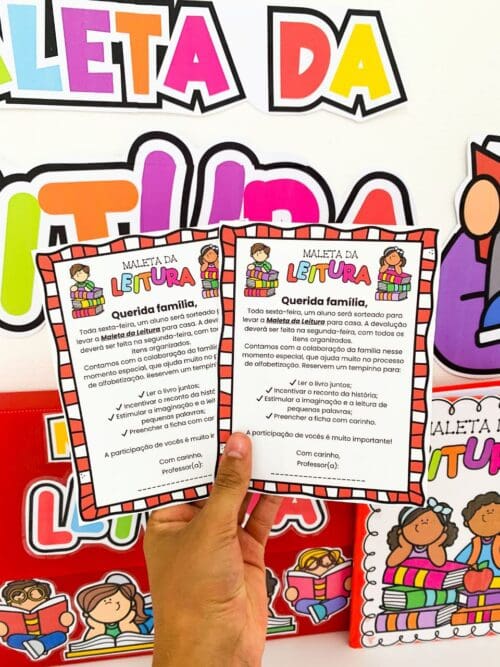 MALETA DA
LEITURA
MALETA DA
LEITURA
Querida família,
Toda sexta-feira, um aluno será sorteado para
levar a Maleta da Leitura para casa. A devolução
deverá ser feita na segunda-feira, com todos os
itens organizados.
Contamos com a colaboração da família
momento especial, que ajuda muito no
de alfabetização. Reservem um tempinho
✓ Ler o livro juntos;
✓ Incentivar o reconto da
✓ Estimular a imaginação e a
pequenas palavras;
✓ Preencher a ficha com
A participação de vocês é muito
Com carinho,
Professor(a):
MALETA DA
LEITURA
Querida família,
Toda sexta-feira, um aluno será sorteado para
levar a Maleta da Leitura para casa. A devolução
deverá ser feita na segunda-feira, com todos os
itens organizados.
Contamos com a colaboração da família nesse
momento especial, que ajuda muito no processo
de alfabetização. Reservem um tempinho para:
✓ Ler o livro juntos;
✓ Incentivar o reconto da história;
✓ Estimular a imaginação e a leitura de
pequenas palavras;
✓ Preencher a ficha com carinho.
A participação de vocês é muito importante!
Com carinho,
Professor(a):
MALETA DA
LEITURA